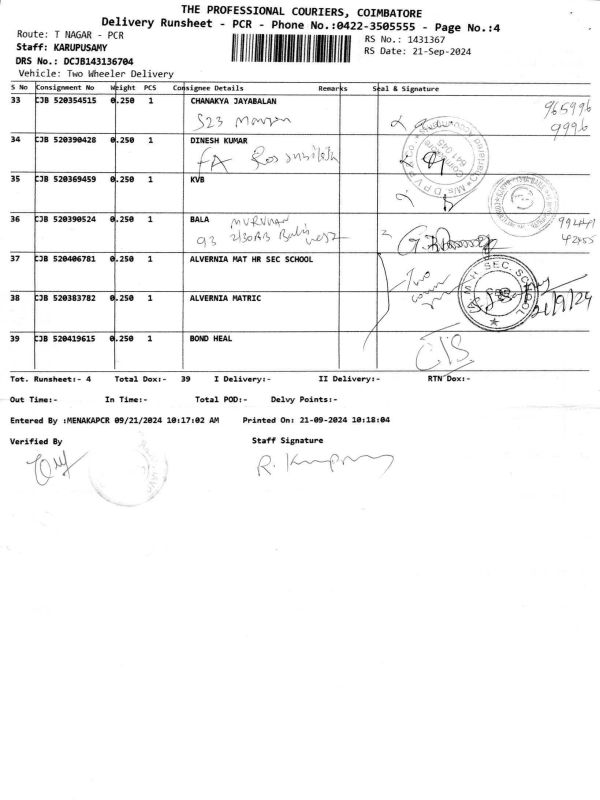 THE PROFESSIONAL COURIERS, COIMBATORE
Delivery Runsheet - PCR - Phone No.:0422-3505555 - Page No.:4
Route: T NAGAR - PCR
RS No.: 1431367
Staff: KARUPUSAMY
RS Date: 21-Sep-2024
DRS No.: DCJB143136704
Vehicle: Two Wheeler Delivery
S No Consignment No Weight PCS Consignee Details Remarks Seal & Signature
33 CJB 520354515 0.250 1 CHANAKYA JAYABALAN
523
965996
9996
34 CJB 520390428 0.250 1 DINESH KUMAR
35 CJB 520369459 0.250 1 KVB
36 CJB 520390524 0.250 1 BALA
MURUGAN
93
99441
42455
37 CJB 520406781 0.250 1 ALVERNIA MAT HR SEC SCHOOL
Two
38 CJB 520383782 0.250 1 ALVERNIA MATRIC
SEC. SCHOOL
21/9/24
39 CJB 520419615 0.250 1 BOND HEAL
Tot. Runsheet:- 4 Total Dox:- 39 I Delivery:- II Delivery:- RTN Dox:-
Out Time:- In Time:- Total POD:- Delvy Points:-
Entered By :MENAKAPCR 09/21/2024 10:17:02 AM Printed On: 21-09-2024 10:18:04
Verified By Staff Signature